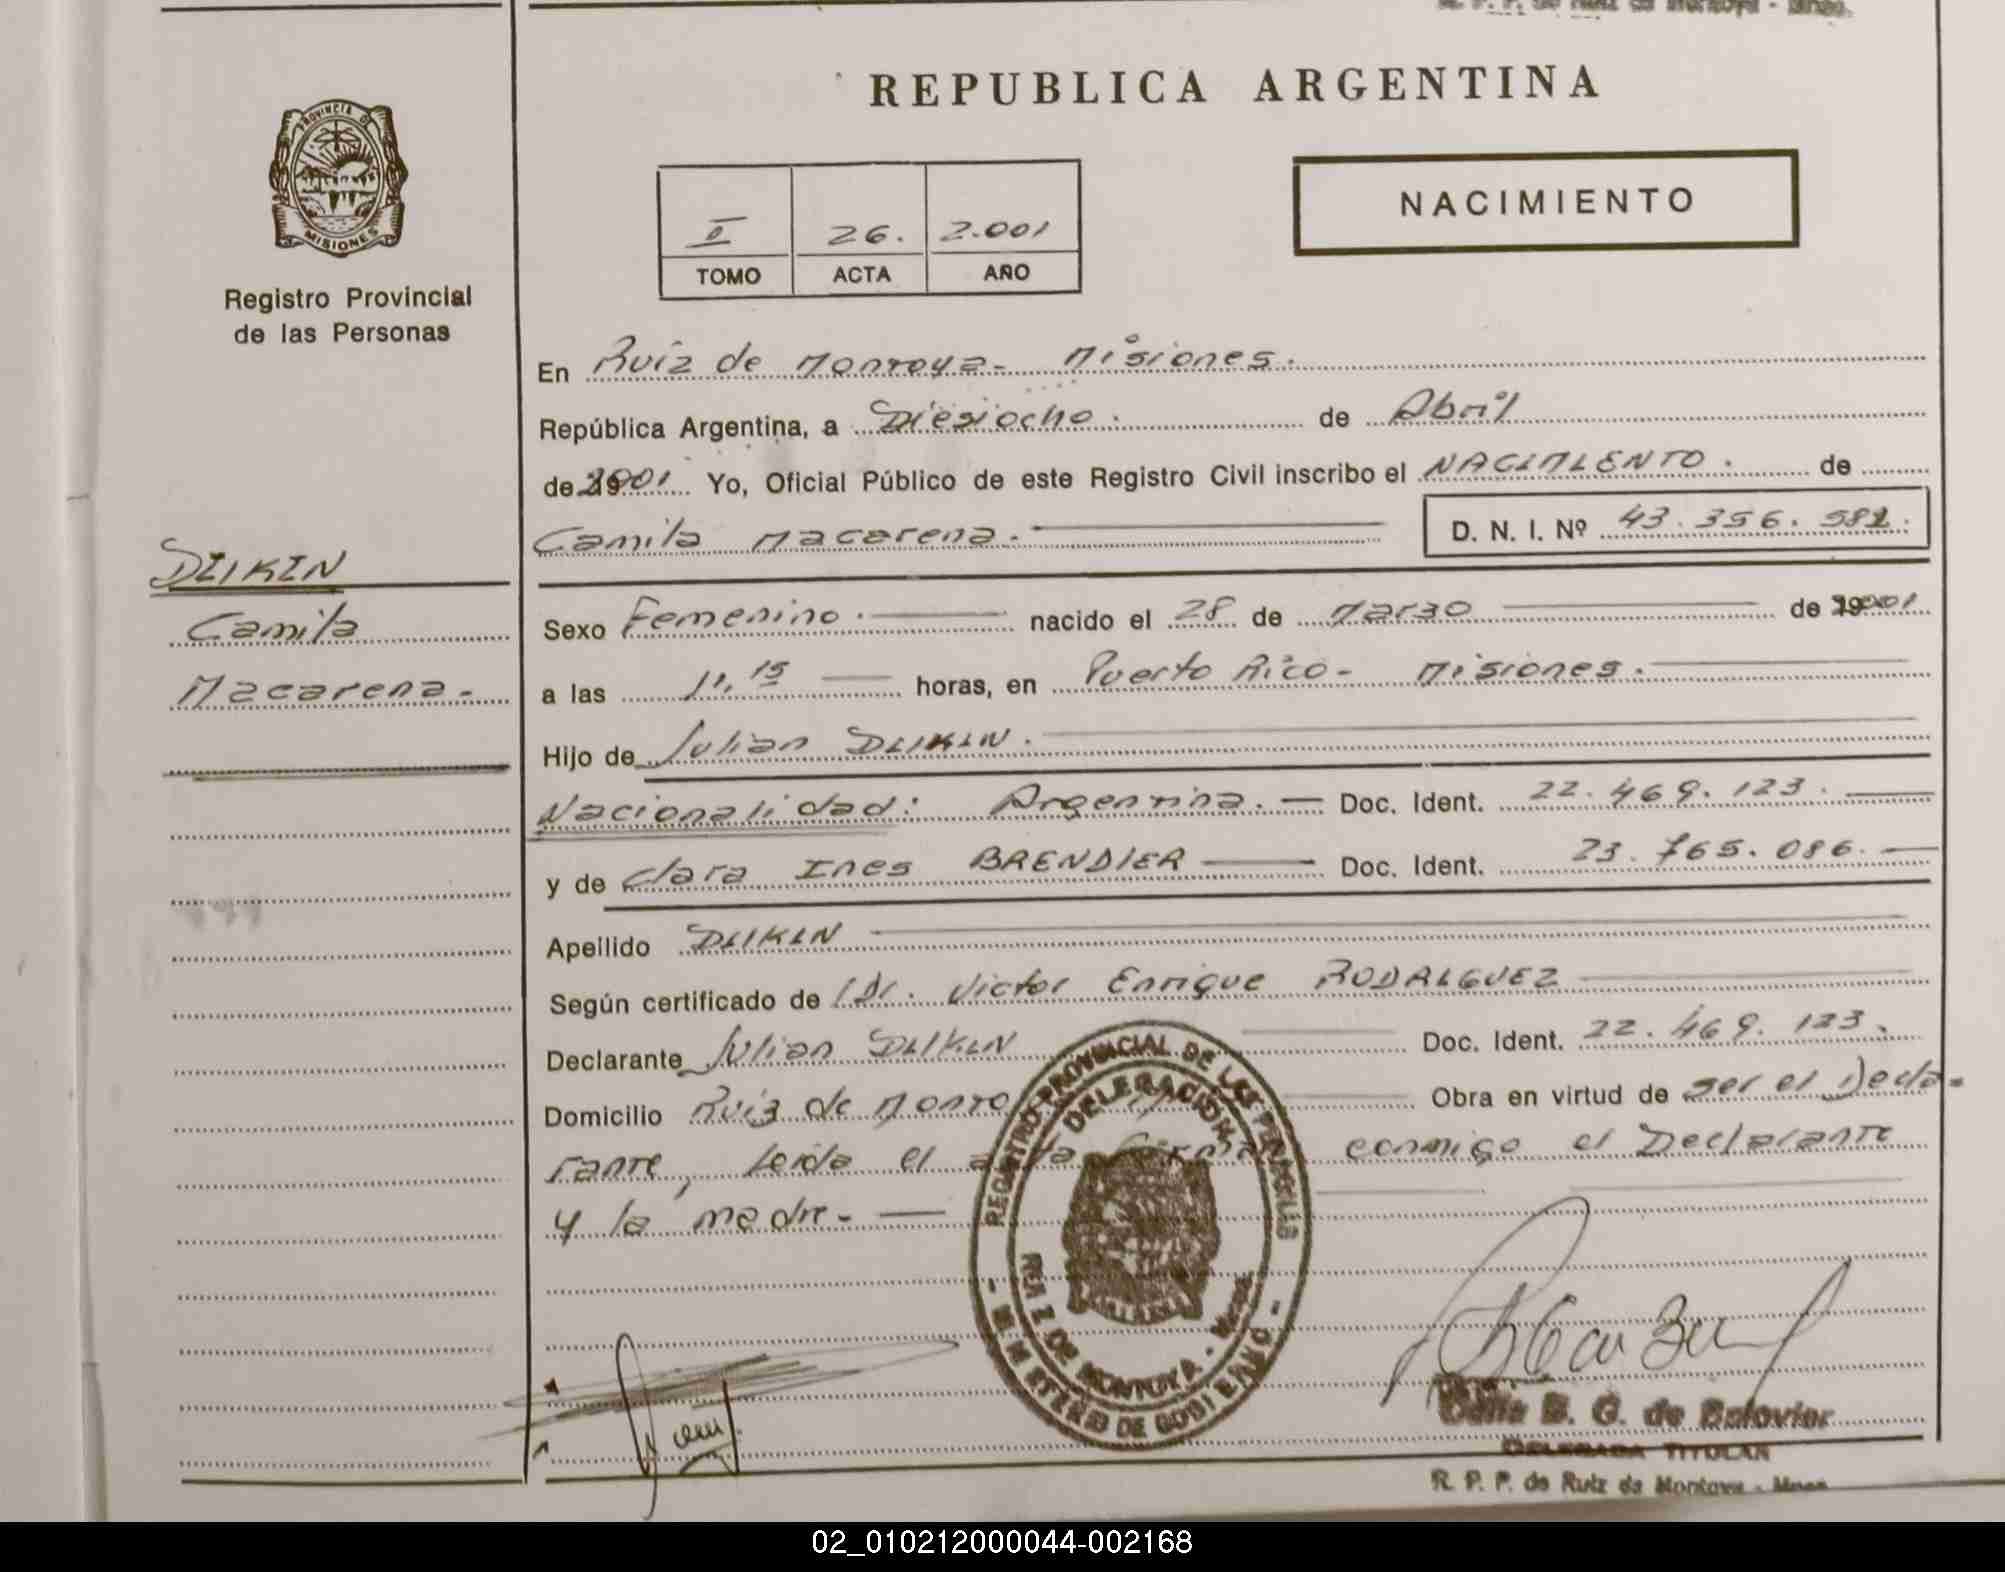 REPUBLICA ARGENTINA
PROVINCIA DE
MISIONES
Registro Provincial
de las Personas
NACIMIENTO
I 26. 2.001
TOMO ACTA AÑO
En Ruíz de Montoya - Misiones.
República Argentina, a Diesiocho. de Abril
de 2001 Yo, Oficial Público de este Registro Civil inscribo el NACIMIENTO. de
Camila Macarena. D. N. I. Nº 43.356.582.
DEIKEN
Camila
Macarena.-
Sexo Femenino. nacido el 28 de Marzo de 2001
a las 11,15 horas, en Puerto Rico - Misiones.
Hijo de Julian DEIKEN.
Nacionalidad: Argentina. Doc. Ident. 22.469.123.
y de Clara Ines BRENDLER Doc. Ident. 23.765.086.
Apellido DEIKEN
Según certificado de Dr. Victor Enrique RODRIGUEZ
Declarante Julian DEIKEN Doc. Ident. 22.469.123.
Domicilio Ruiz de Monto Obra en virtud de ser el Decla-
rante, Leida el acta firma conmigo el Declarante
y la madre.-
REGISTRO PROVINCIAL DE LAS PERSONAS
DELEGACION
RUIZ DE MONTOYA - Mnes.
- MINISTERIO DE GOBIERNO -
B. G. de
DELEGADA TITULAR
R. P. P. de Ruiz de Montoya - Mnes.
02_010212000044-002168